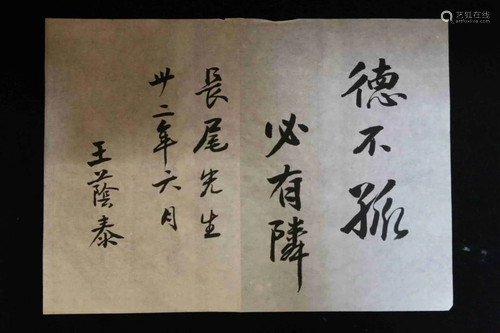 德不孤
必有隣
長尾先生
卅二年六月
王蔭泰
艺狐在线
artfoxlive.com